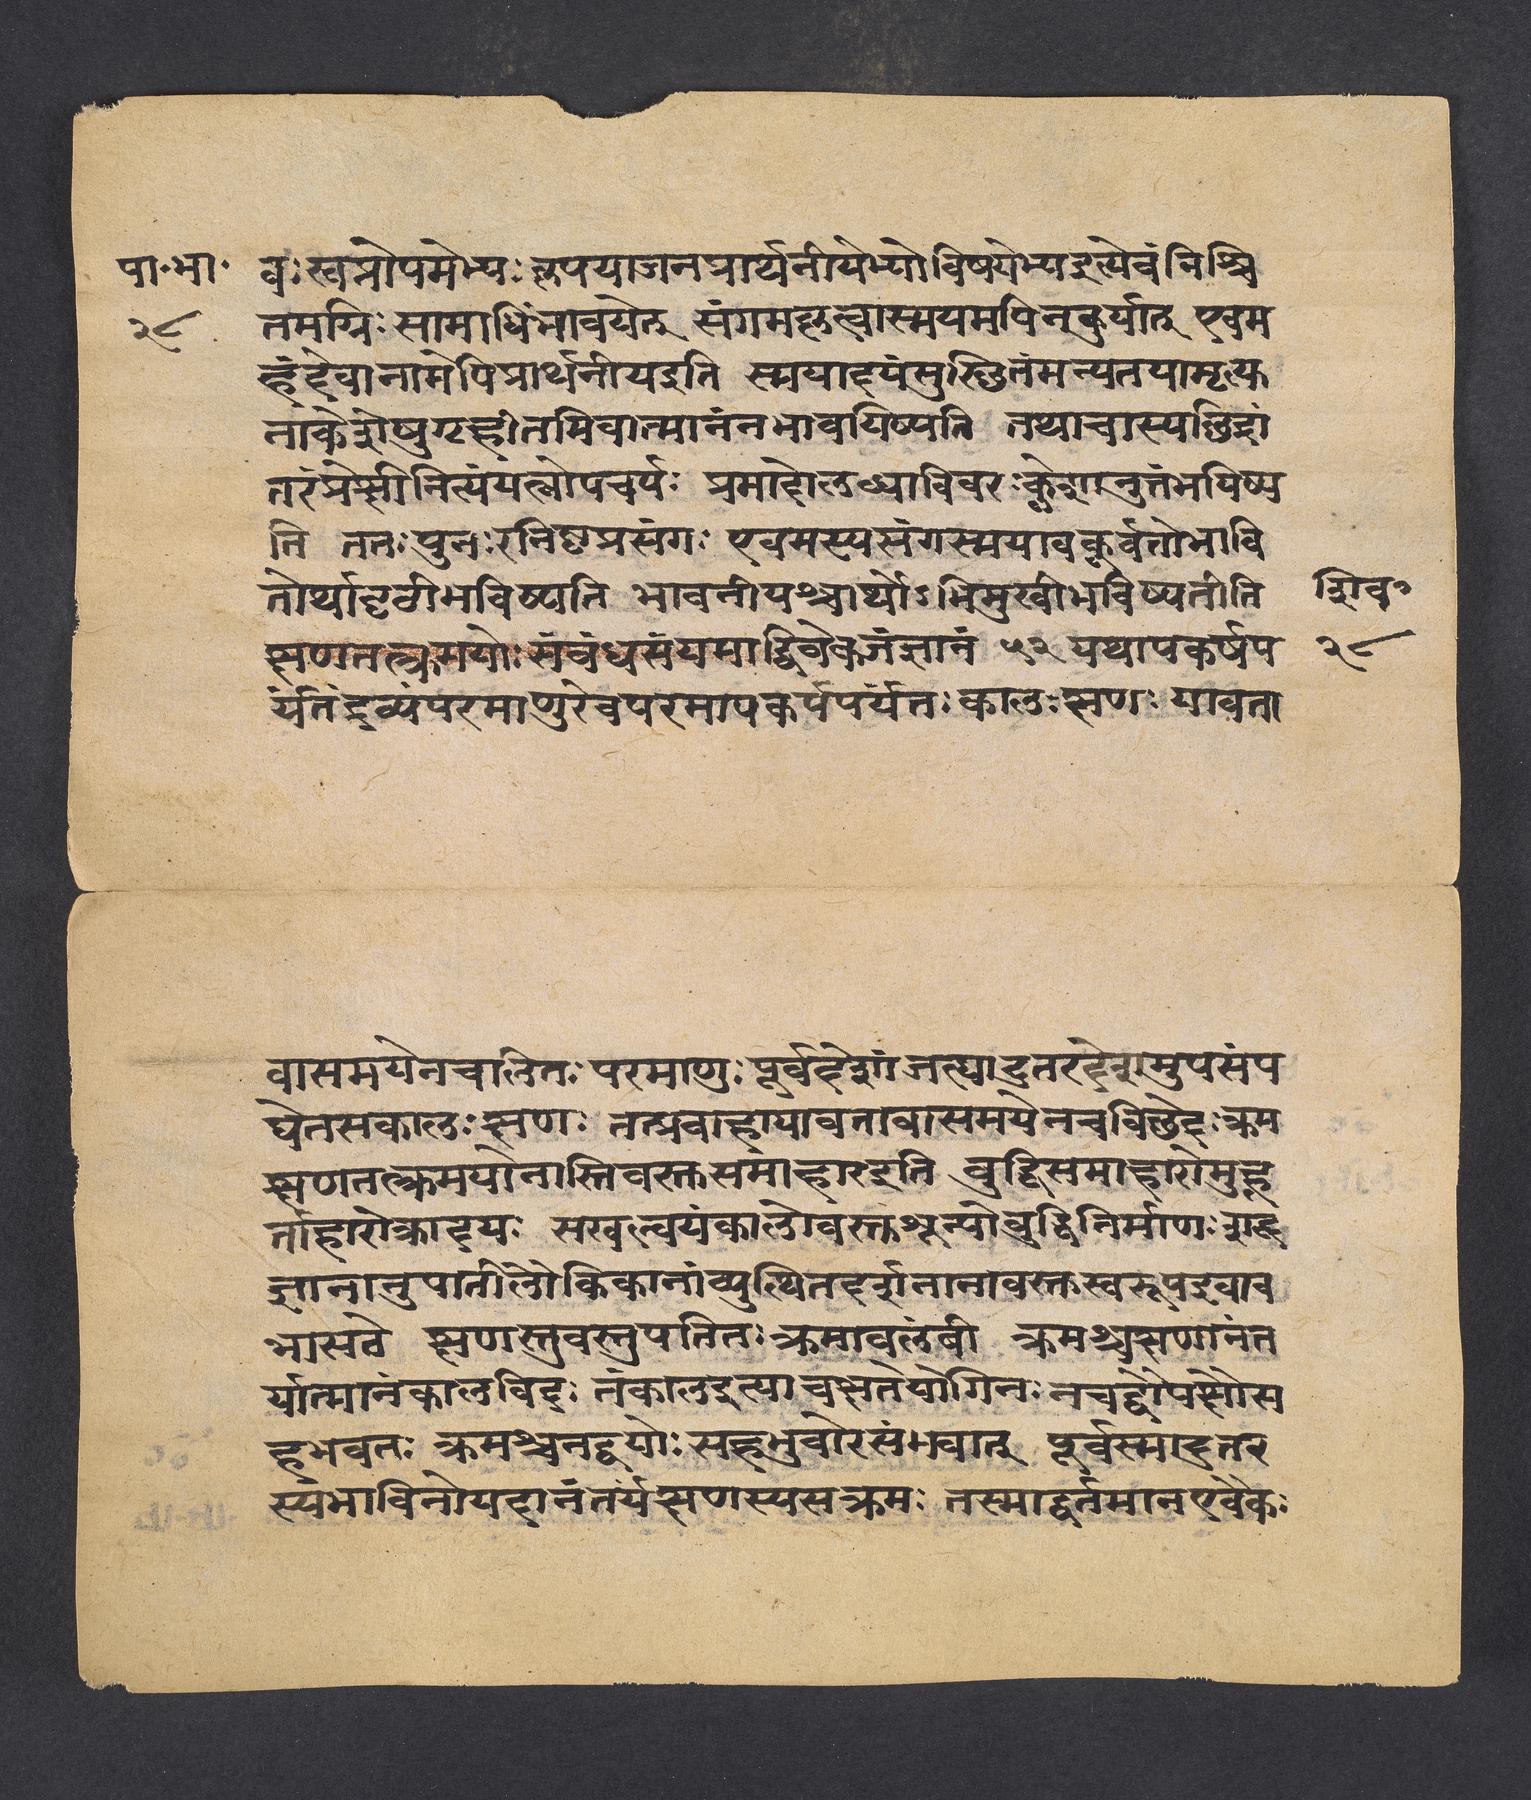 पा॰भा॰ वः स्वप्नोपमेभ्यः कृपयाजनप्रार्थनीयेभ्योविषयेभ्यइत्येवंनिश्चि
२८ तमयिः सामाधिंभावयेत् संगमकृत्वास्मयमपिनकुर्यात् एवम
हंदेवानामेपिप्रार्थनीयइति स्मयादयंसुस्थितंमन्यतयामृत्य
नाकेशेषुगृहीतमिवात्मानंनभावयिष्यति तथाचास्यछिद्रां
तरंप्रेक्षीनित्यंयत्नोपचर्यः प्रमादोलब्धाविवरः क्लेशानुत्तंभयिष्य
ति ततः पुनःरनिष्टप्रसंगः एवमस्यसंगस्मयावकुर्वतोभावि
तोर्थादृढीभविष्यति भावनीयश्चार्थोऽभिमुखीभविष्यतीति शिव॰
क्षणतत्क्रमयोः संबंधसंयमाद्विवेकजंज्ञानं ५२ यथापकर्षप २८
र्यंतंद्रव्यंपरमाणुरेवपरमापकर्षपर्यंतः कालः क्षणः यावता
वासमयेनचालितः परमाणुः पूर्वदेशंजत्यादुतरदेशमुपसंप
द्येतसकालः क्षणः तत्प्रवाहायावतावासमयेनचविछेदः क्रम
क्षणतत्क्रमयोनास्तिवस्तसमाहारइति बुद्धिसमाहारोमुहू
र्ताहारोत्रादयः सखल्वयंकालोवस्तशून्योबुद्धिनिर्माणः शब्द
ज्ञानानुपातीलौकिकानांव्युत्थितदर्शनानावस्तस्वरूपइवाव
भासते क्षणस्तुवस्तुपतितः क्रमावलंबी क्रमश्चक्षणानंत
र्यात्मानंकालविदः तंकालइत्याचक्षतेयोगिनः नचद्वौपक्षौस
हभवतः क्रमश्चनद्वयोः सहभुवोरसंभवात् पूर्वस्मादुतर
स्यभाविनोयदानंतर्यक्षणस्यसक्रमः तस्माद्वर्तमानएवैकः